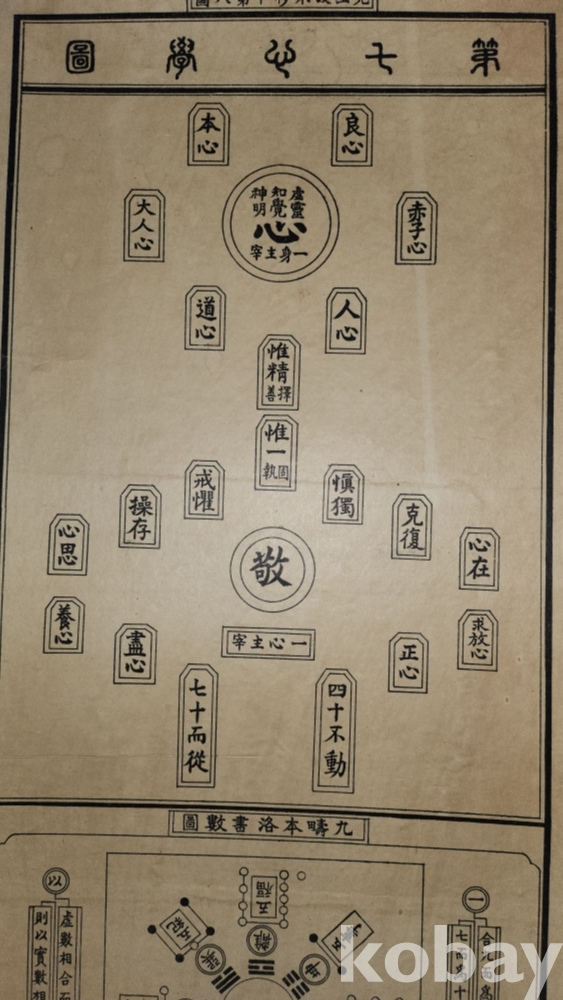 第七心學圖
良心
本心
虛靈
知覺
神明
心
一身主宰
赤子心
大人心
人心
道心
惟精
擇善
惟一
固執
愼獨
戒懼
克復
操存
心在
心思
敬
求放心
養心
正心
盡心
一心主宰
四十不動
七十而從
九疇本洛書數圖
五福
離
一
以
虛數相合
則以實數相
kobay